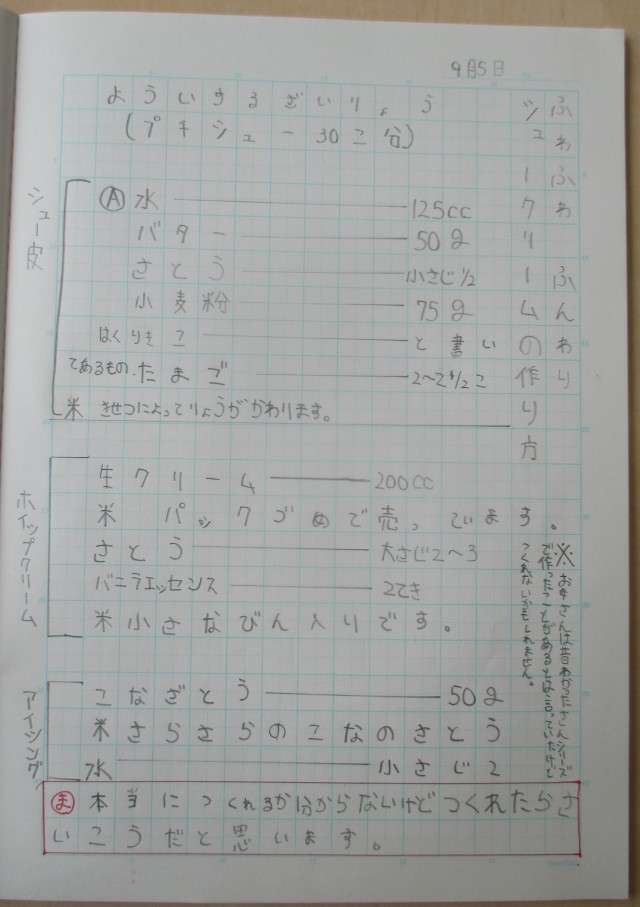 9月5日
ふわふわふんわり
シュークリームの作り方
よういするざいりょう
(プチシュー30こ分)
シュー皮
Ⓐ水 ― 125cc
バター ― 50g
さとう ― 小さじ1/2
小麦粉 ― 75g
はくりきこ ― と書い
てあるもの.たまご ― 2〜2 1/2こ
米 きせつによってりょうがかわります。
ホイップクリーム
生クリーム ― 200cc
米 パックづめで売っています。
さとう ― 大さじ2〜3
バニラエッセンス ― 2てき
米小さなびん入りです。
※お母さんは昔わかったさんシリーズ
で作ったことがあるとは言っていたけど
つくれないかもしれません。
アイシング
こなざとう ― 50g
米さらさらのこなのさとう
水 ― 小さじ2
ま 本当につくれるか分からないけどつくれたらさ
いこうだと思います。